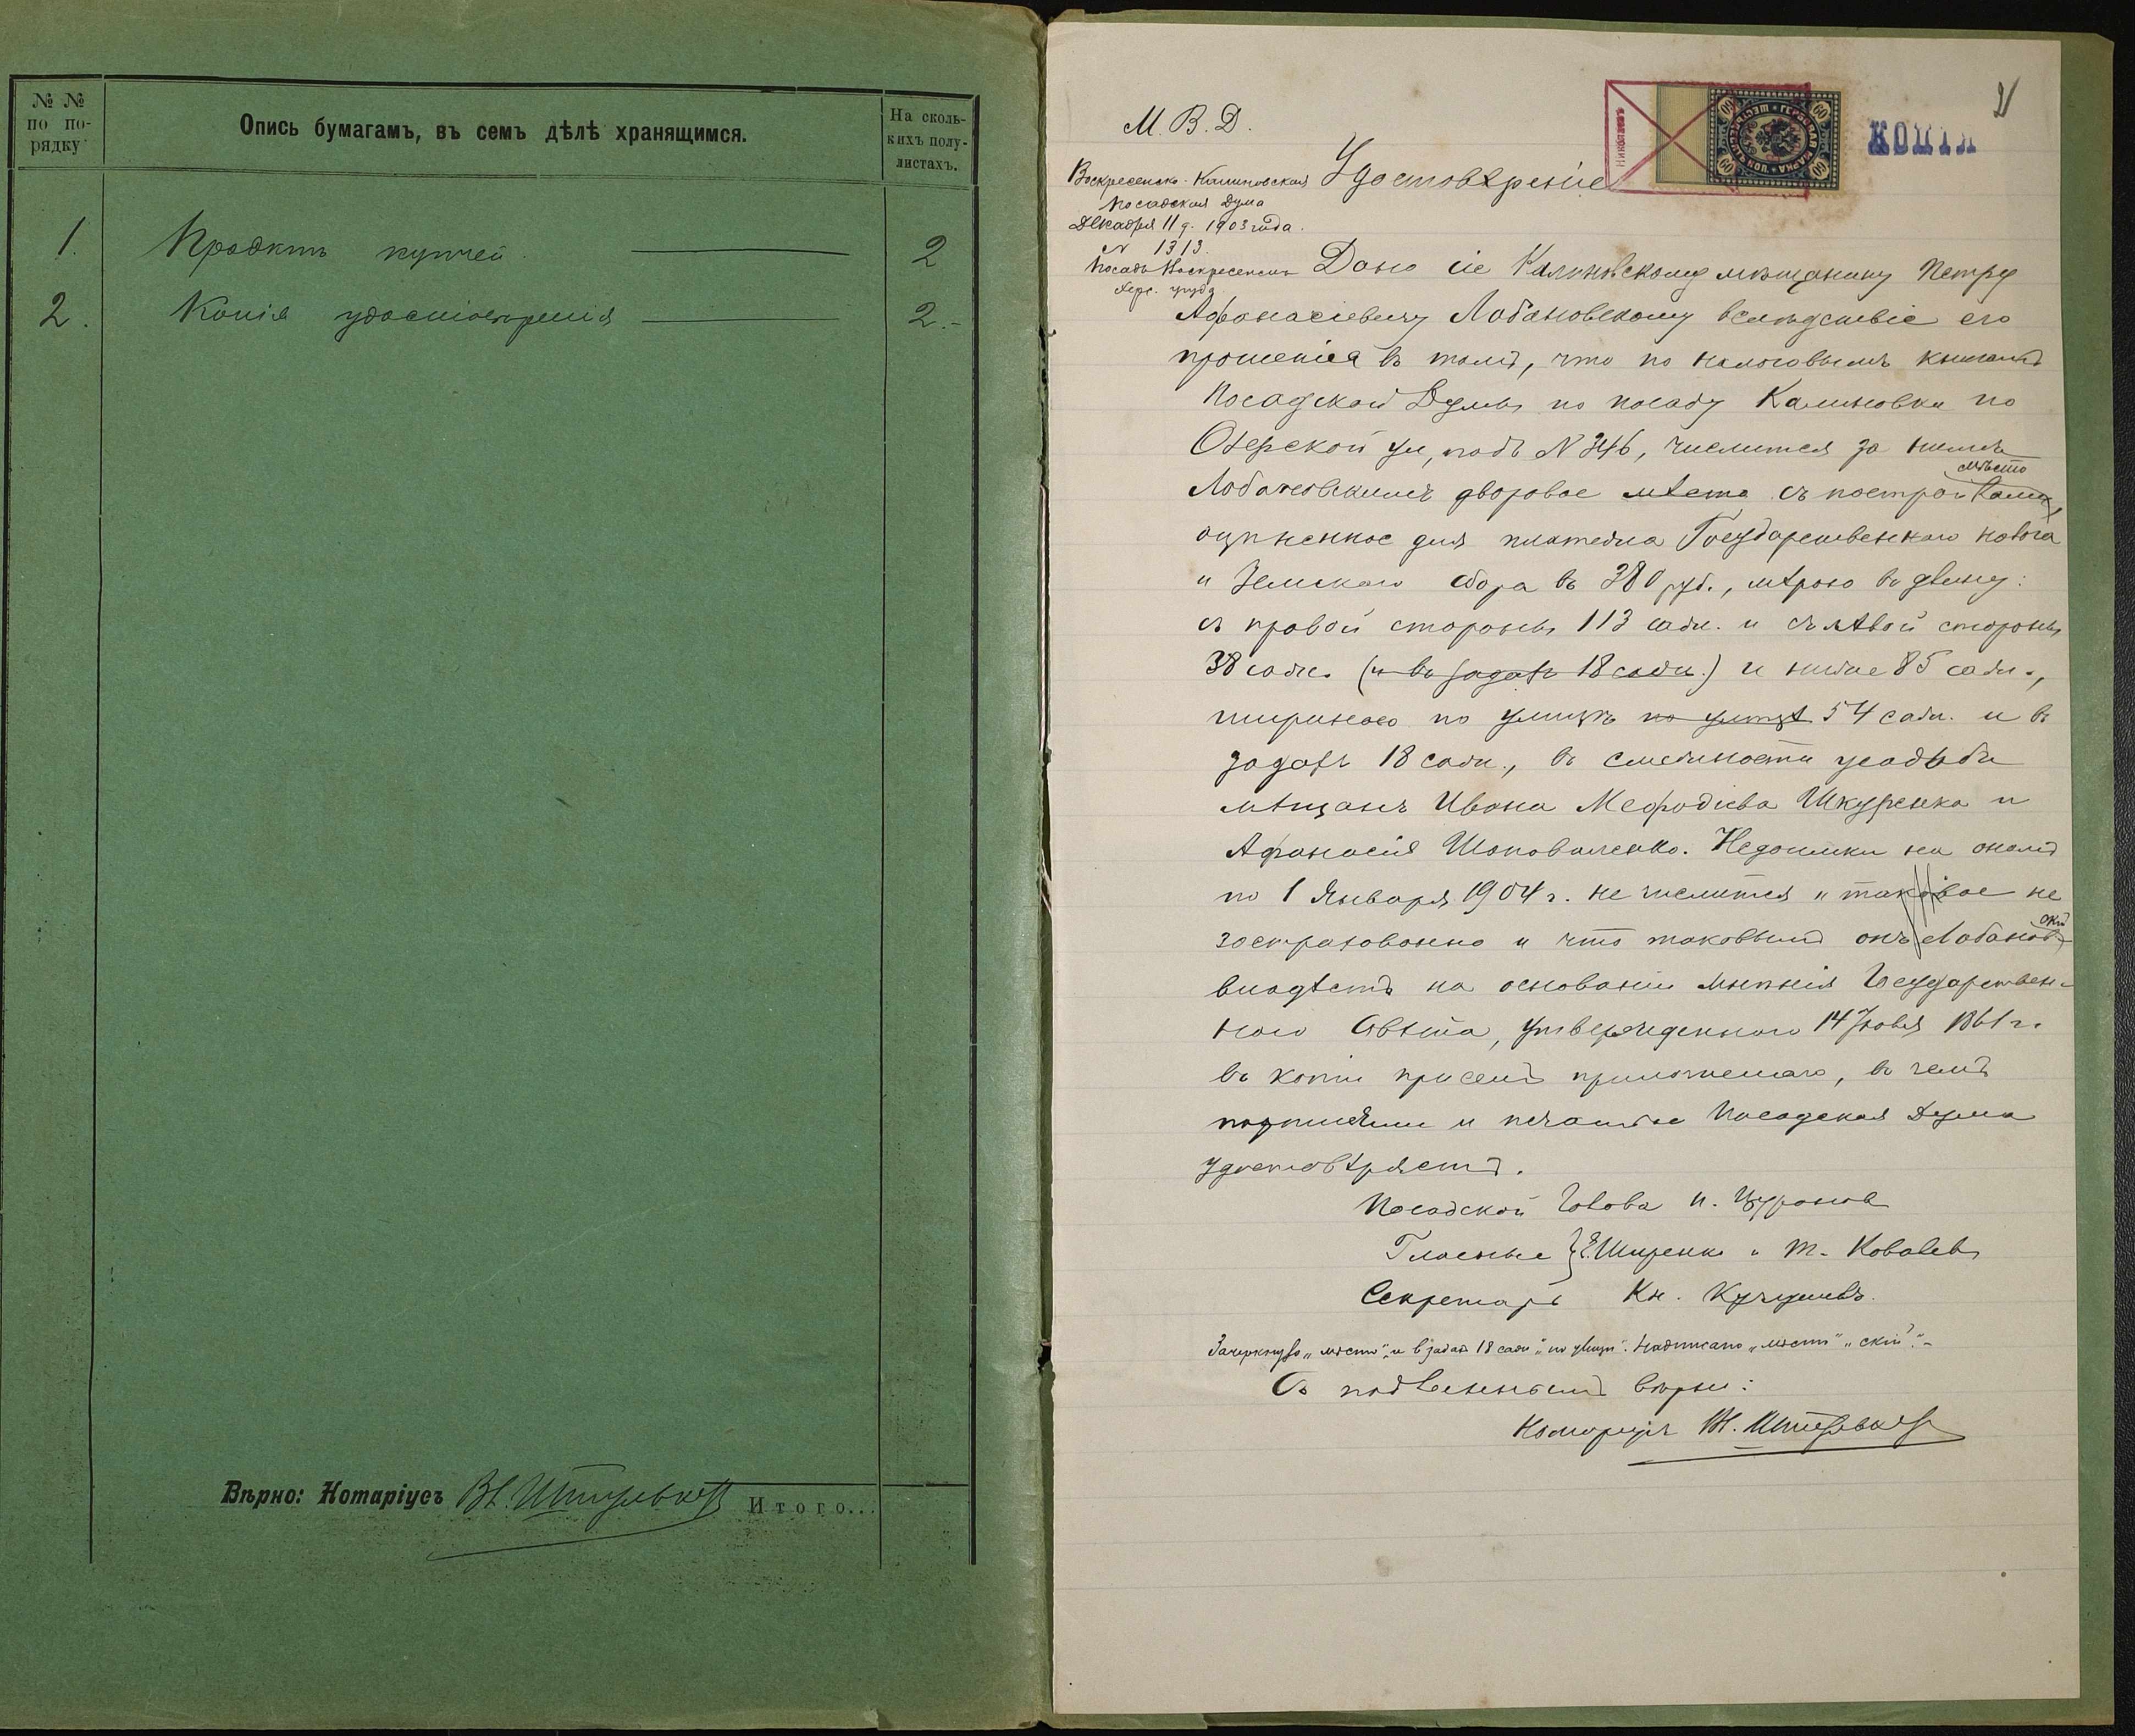 № №
по по-
рядку
Опись бумагамъ, въ семъ дѣлѣ хранящимся.
На сколь-
кихъ полу-
листахъ.
1. Проэктъ купчей 2
2. Копія удостовѣренія 2.-
Вѣрно: Нотаріусъ
Итого...
2
КОПІЯ
Николаевъ
ГЕРБОВАЯ МАРКА
60 60 60 60
М. В. Д.
Воскресенско-Калиновская
Посадская Дума
Декабря 11 д. 1903 года.
N 1313.
Посадъ Воскресенскъ
Херс. уѣзда
Удостовѣреніе
Дано сіе Калиновскому мѣщанину Петру
Афонасіевичу Лобановскому вслѣдствіе его
прошенія въ томъ, что по налоговымъ книгамъ
Посадской Думы по посаду Калиновки по
Озерской ул, подъ N 346, числится за нимъ
мѣсто
Лобановскимъ дворовое мѣсто съ постройками,
оцѣненное для платежа Государственного налога
и Земскаго сбора въ 380 руб., мѣрою въ длину:
съ правой стороны 113 саж. и съ лѣвой стороны
38 саж. (и въ задахъ 18 саж.) и ниже 85 саж.,
шириною по улицѣ по улицѣ 54 саж. и въ
задахъ 18 саж., въ смежности усадьбъ
мѣщанъ Ивана Мефодіева Шкуренка и
Афанасія Шаповаленко. Недоимки на ономъ
по 1 Января 1904 г. не числится и таковое не
скій
застраховано и что таковымъ онъ Лобанов
владѣетъ на основаніи мнѣнія Государствен-
ного Совѣта, утвержденного 14 1861 г.
въ копіи присемъ приложеннаго, въ чемъ
подписями и печатью Посадская Дума
удостовѣряетъ.
Посадской Голова И.
Гласные Е. Ширенко и Т. Ковалевъ
Секретарь Кн.
Зачеркнуто „мѣсто" „и въ задахъ 18 саж" „по улицѣ". Надписано „мѣсто" „скій".-
Съ подлиннымъ вѣрно:
Нотаріусъ